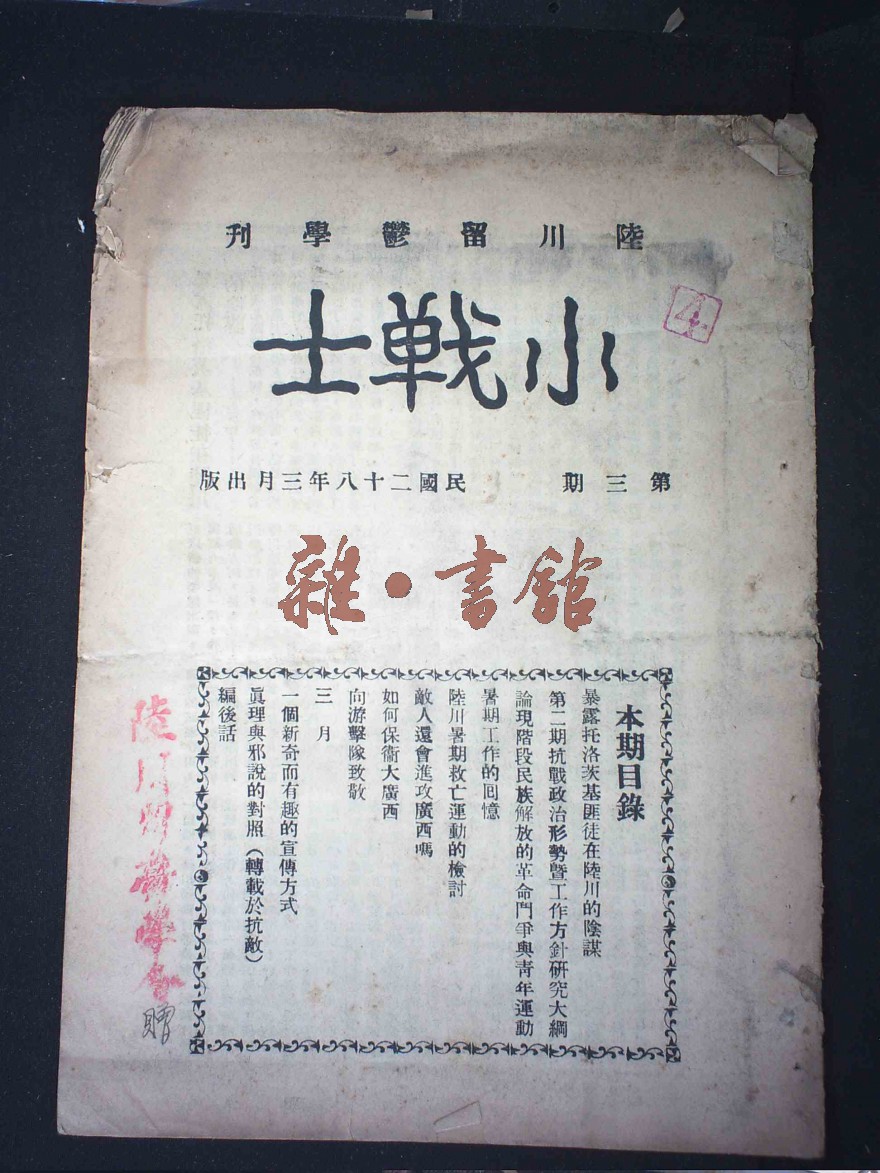 陸川留鬱學刊
小戰士
4
第三期 民國二十八年三月出版
雜·書館
本期目錄
暴露托洛茨基匪徒在陸川的陰謀
第二期抗戰政治形勢暨工作方針研究大綱
論現階段民族解放的革命鬥爭與青年運動
暑期工作的回憶
陸川暑期救亡運動的檢討
敵人還會進攻廣西嗎
如何保衞大廣西
向游擊隊致敬
三月
一個新奇而有趣的宣傳方式
眞理與邪說的對照（轉載於抗敵）
編後話
陸川留鬱學會
贈